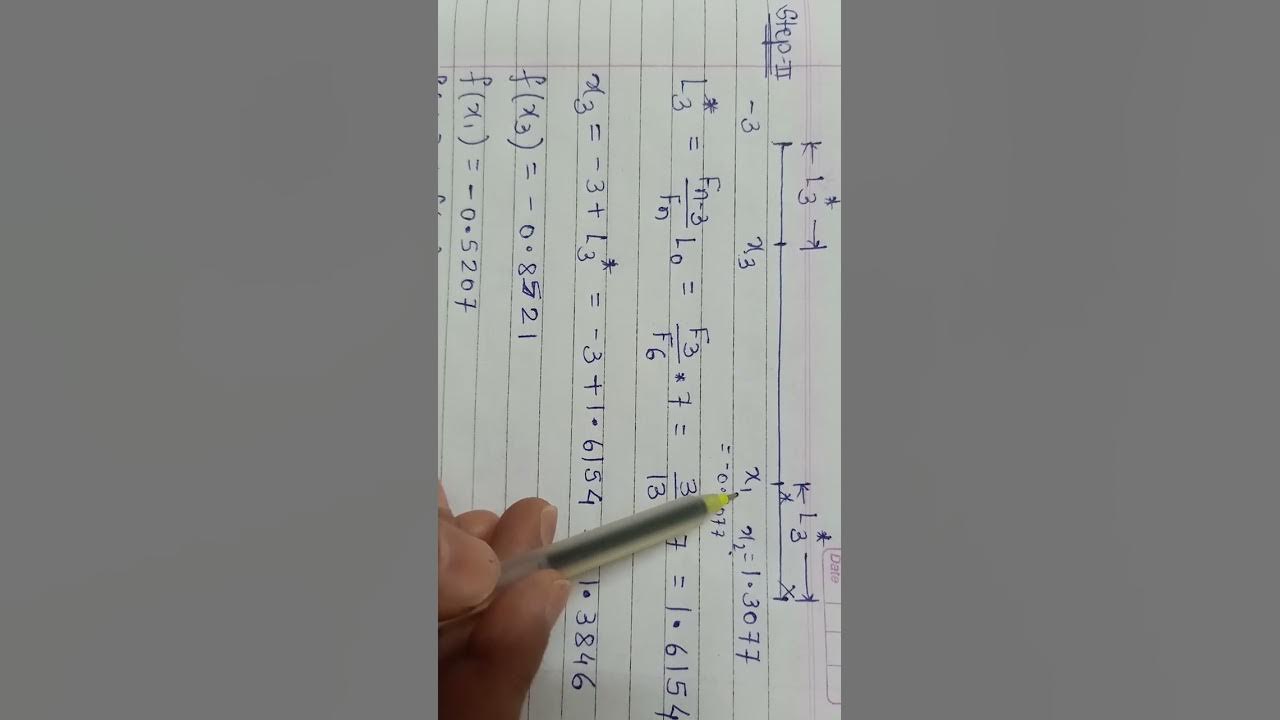 Date
Step-II
L₃* L₃*
-3 x₃ x₁ x₂ = 1.3077
L₃* = Fn-3/Fn L₀ = F3/F6 * 7 = 3/13 7 = 1.6154
x₃ = -3 + L₃* = -3 + 1.6154 1.3846
f(x₃) = -0.8521
f(x₁) = -0.5207